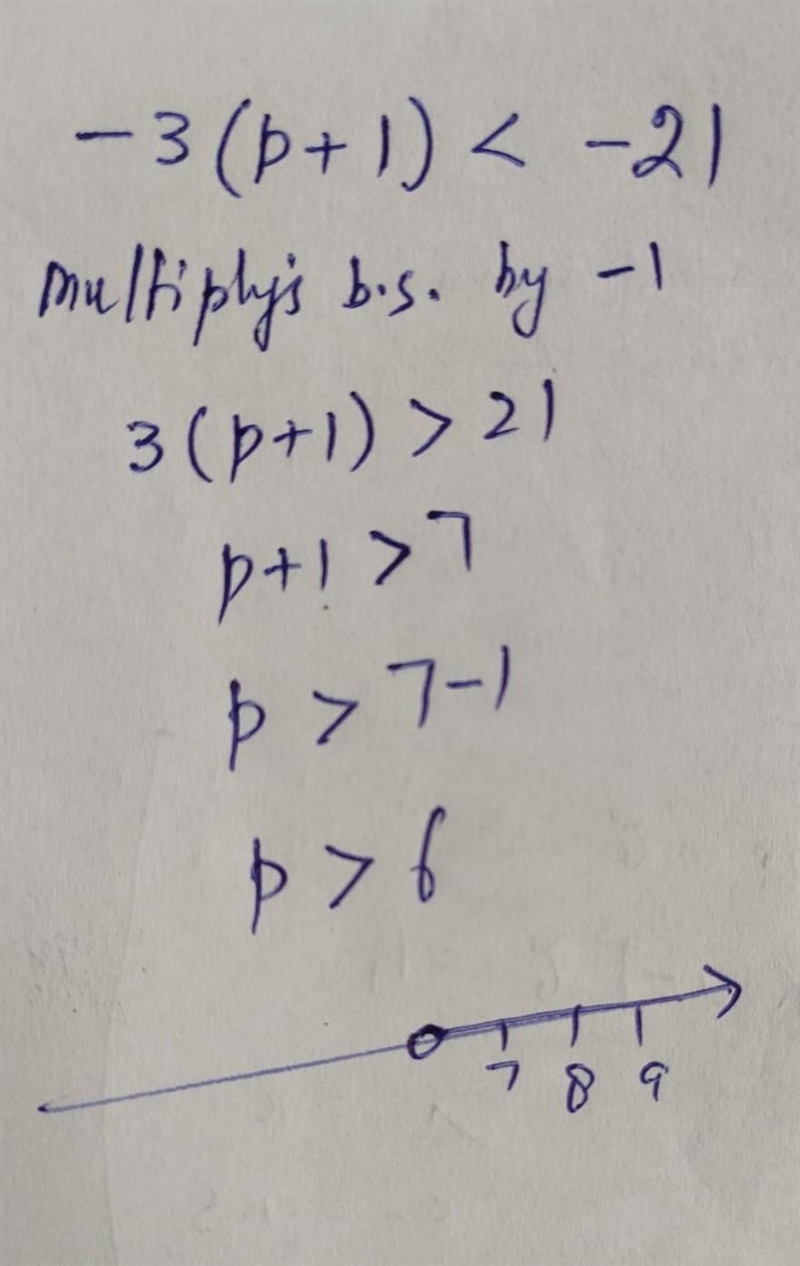 -3(p+1) < -21
Multiply's b.s. by -1
3(p+1) > 21
p+1 > 7
p > 7-1
p > 6
7 8 9